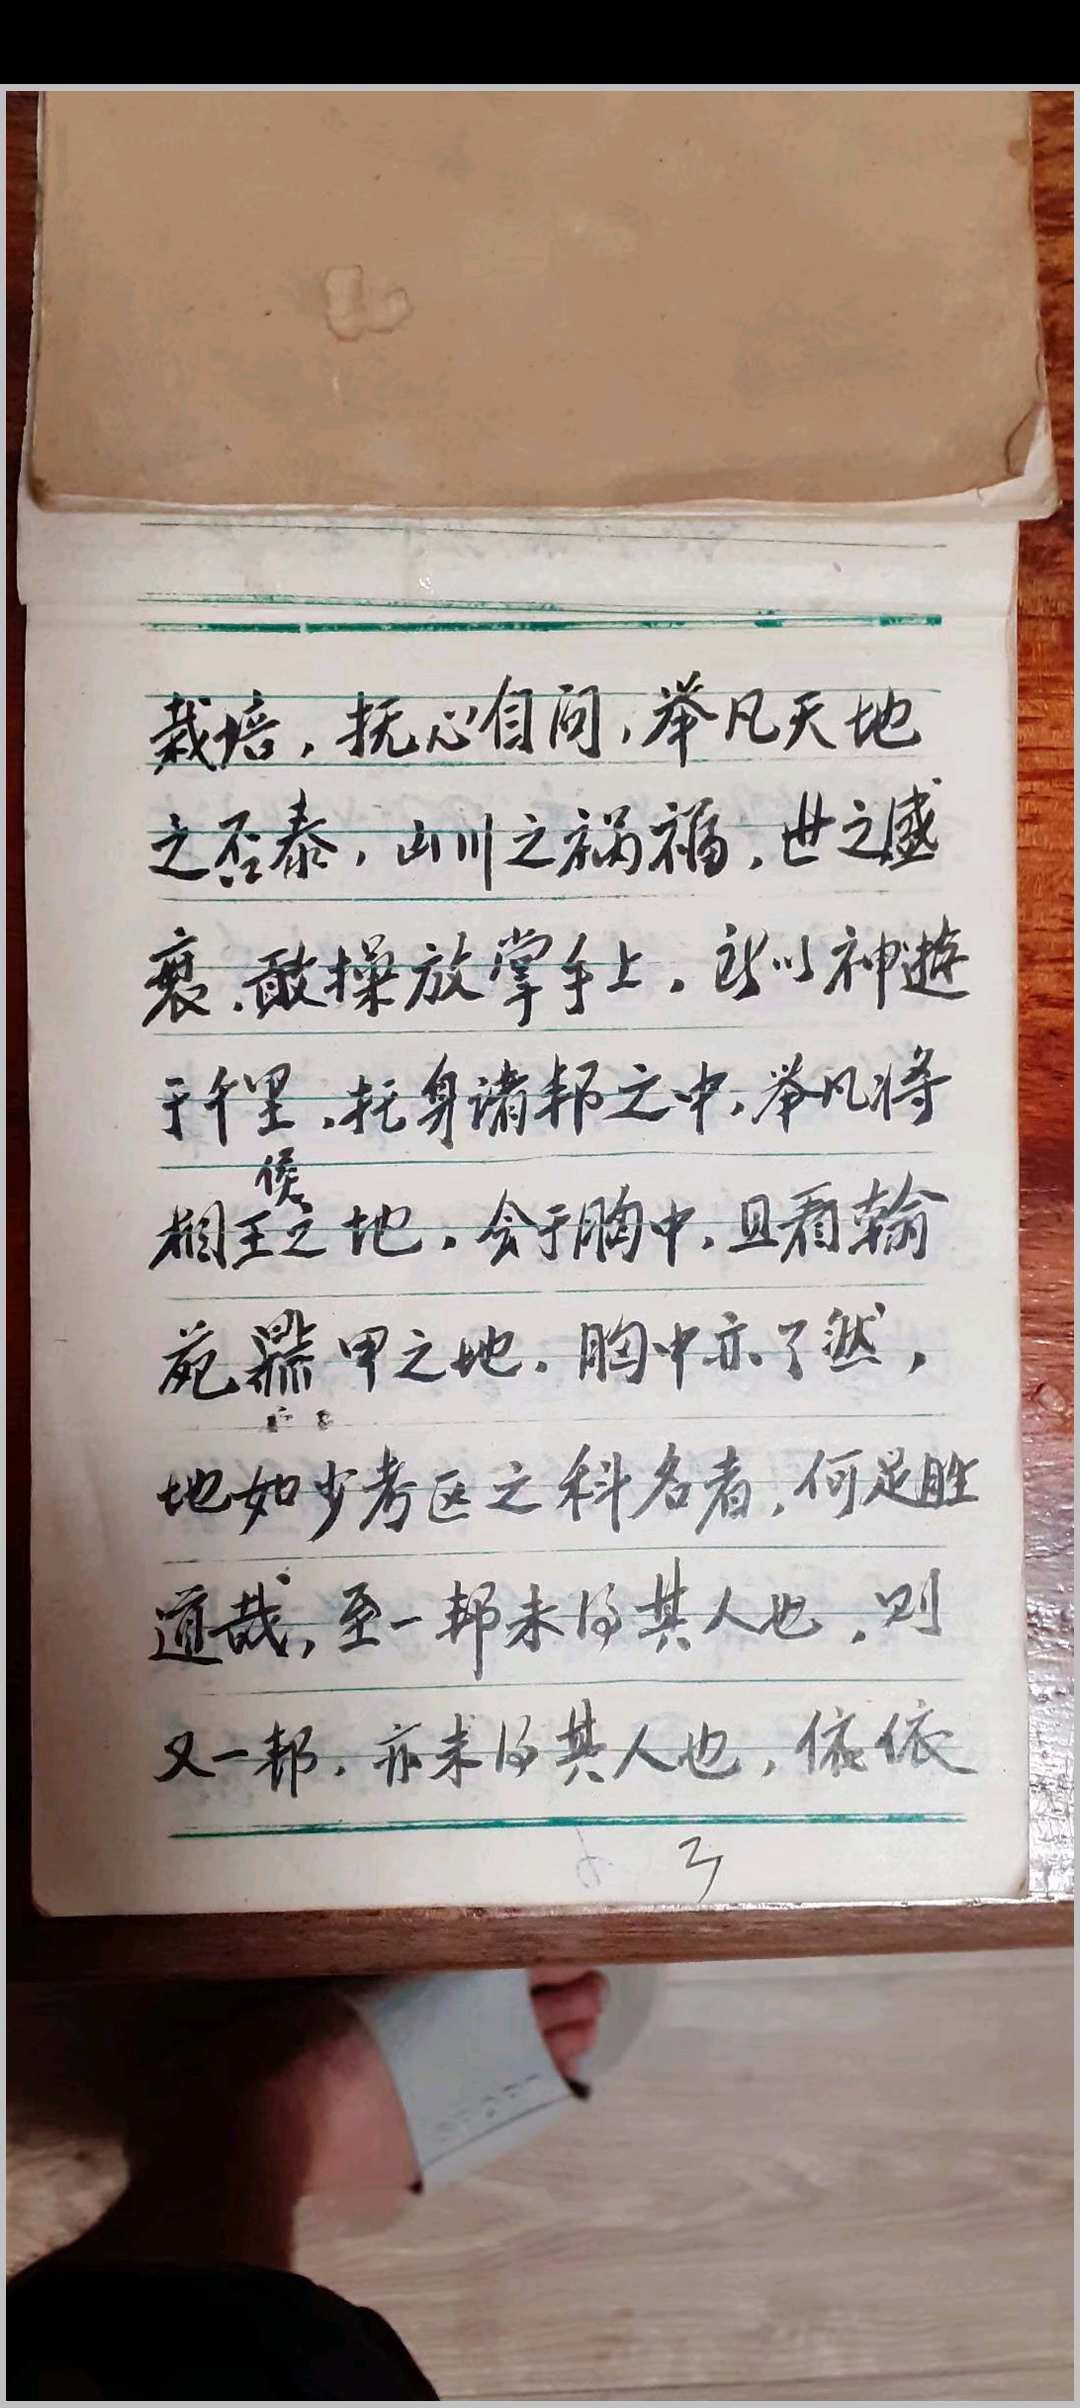 栽培，抚心自问，举凡天地
之否泰，山川之祸福，世之盛
衰，敢操放掌手上，所以神遊
于千里，托身诸邦之中，举凡将
相王侯之地，会于胸中，且看翰
苑鼎甲之地，胸中亦了然，
地如少考区之科名者，何足胜
道哉，至一邦未得其人也，则
又一邦，亦未得其人也，依依
3